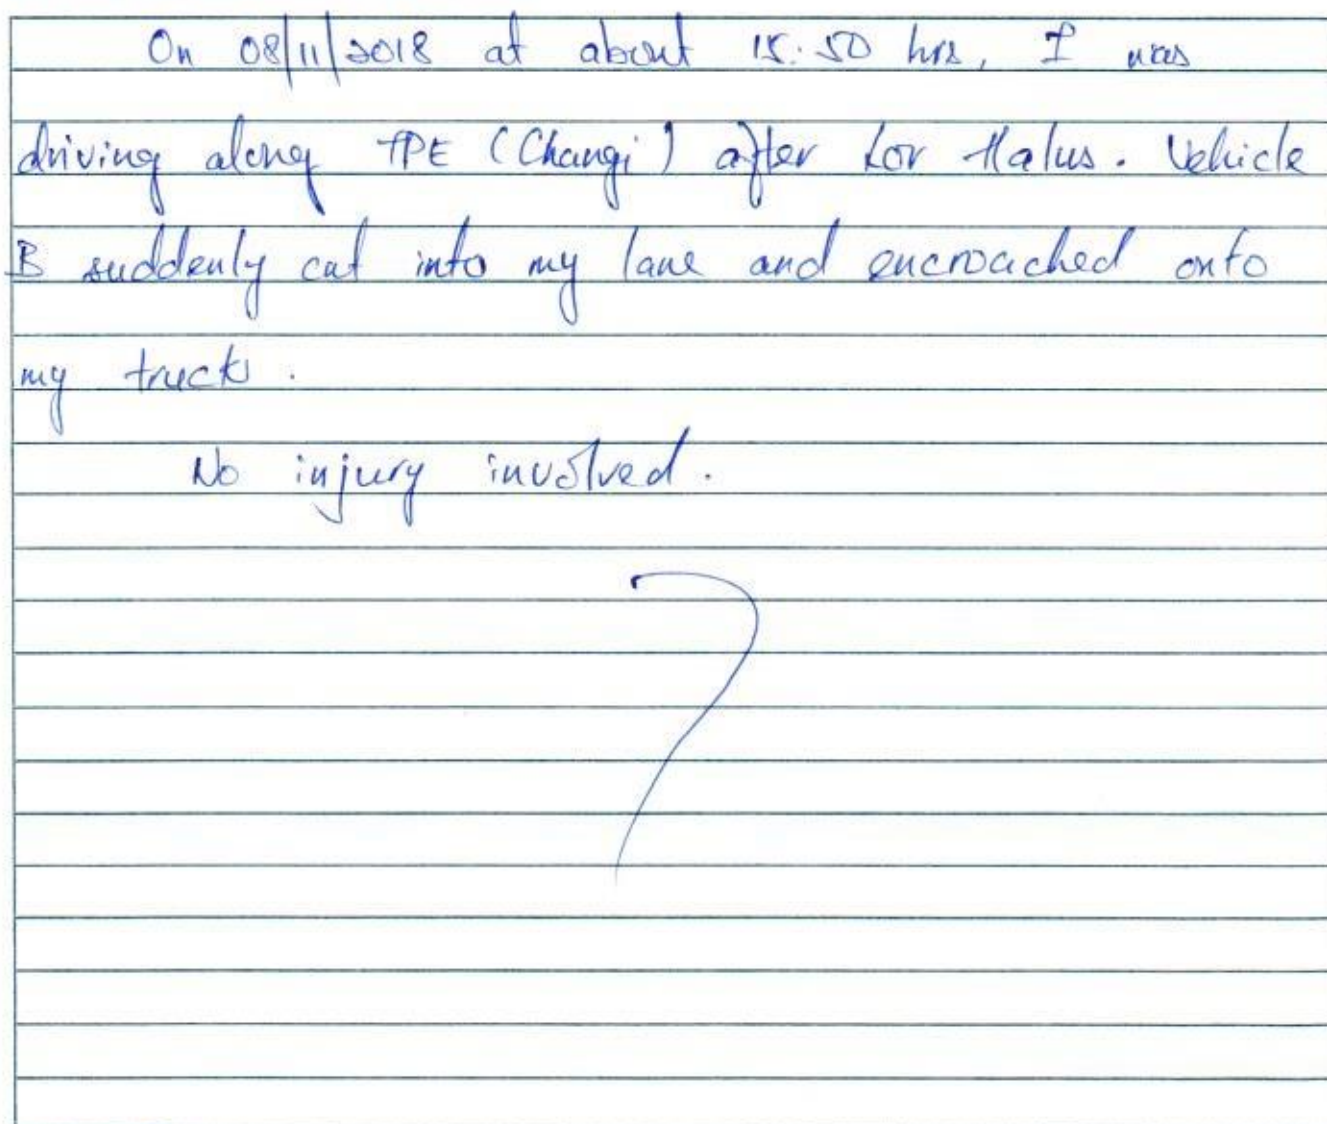 On 08/11/2018 at about 15:50 hrs, I was
driving along TPE (Changi) after Lor Halus. Vehicle
B suddenly cut into my lane and encroached onto
my truck.
No injury involved.